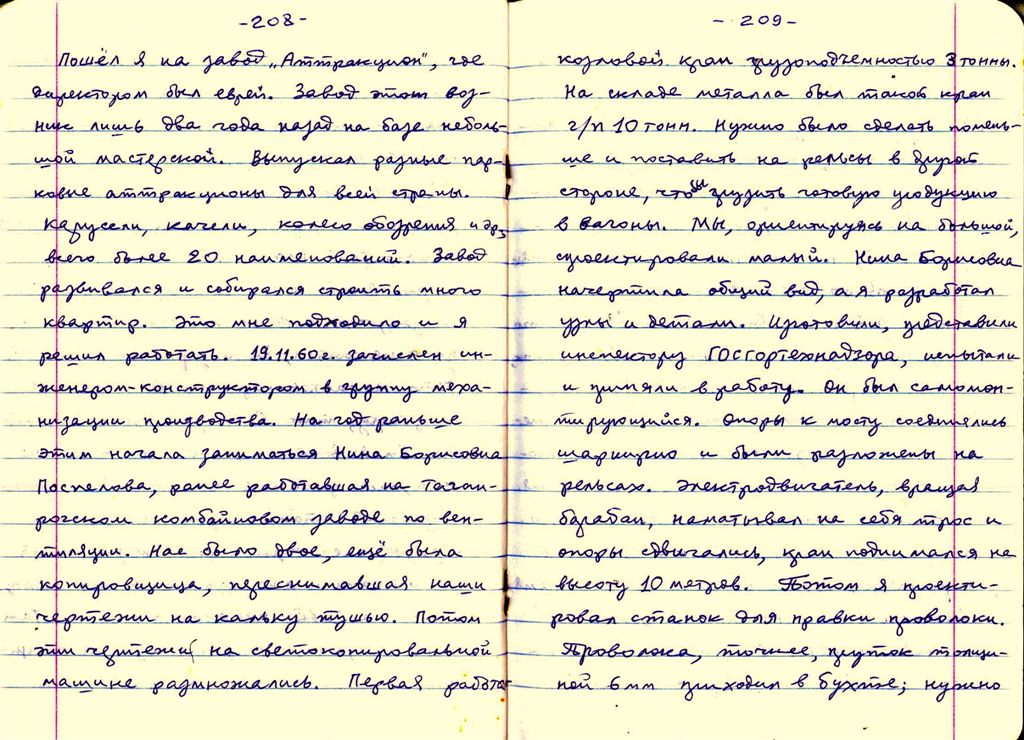 -208-
Пошёл я на завод „Аттракцион", где
директором был еврей. Завод этот воз-
ник лишь два года назад на базе неболь-
шой мастерской. Выпускал разные пар-
ковые аттракционы для всей страны.
Карусели, качели, колесо обозрения и др,
всего более 20 наименований. Завод
развивался и собирался строить много
квартир. Это мне подходило и я
решил работать. 19.11.60г. зачислен ин-
женером-конструктором в группу меха-
низации производства. На год раньше
этим начала заниматься Нина Борисовна
Поспелова, ранее работавшая на Таган-
рогском комбайновом заводе по вен-
тиляции. Нас было двое, ещё была
копировщица, переснимавшая наши
чертежи на кальку тушью. Потом
эти чертежи на светокопировальной
машине размножались. Первая работа
-209-
козловой кран грузоподъемностью 3 тонны.
На складе металла был таков кран
г/п 10 тонн. Нужно было сделать помень-
ше и поставить на рельсы в другой
стороне, чтобы грузить готовую продукцию
в вагоны. Мы, ориентируясь на большой,
спроектировали малый. Нина Борисовна
начертила общий вид, а я разработал
узлы и детали. Изготовили, представили
инспектору ГОСгортехнадзора, испытали
и приняли в работу. Он был самомон-
тирующийся. Опоры к мосту соединялись
шарнирно и были разложены на
рельсах. Электродвигатель, вращая
барабан, наматывал на себя трос и
опоры сдвигались, кран поднимался на
высоту 10 метров. Потом я проекти-
ровал станок для правки проволоки.
Проволока, точнее, пруток толщи-
ной 6 мм приходил в бухте; нужно